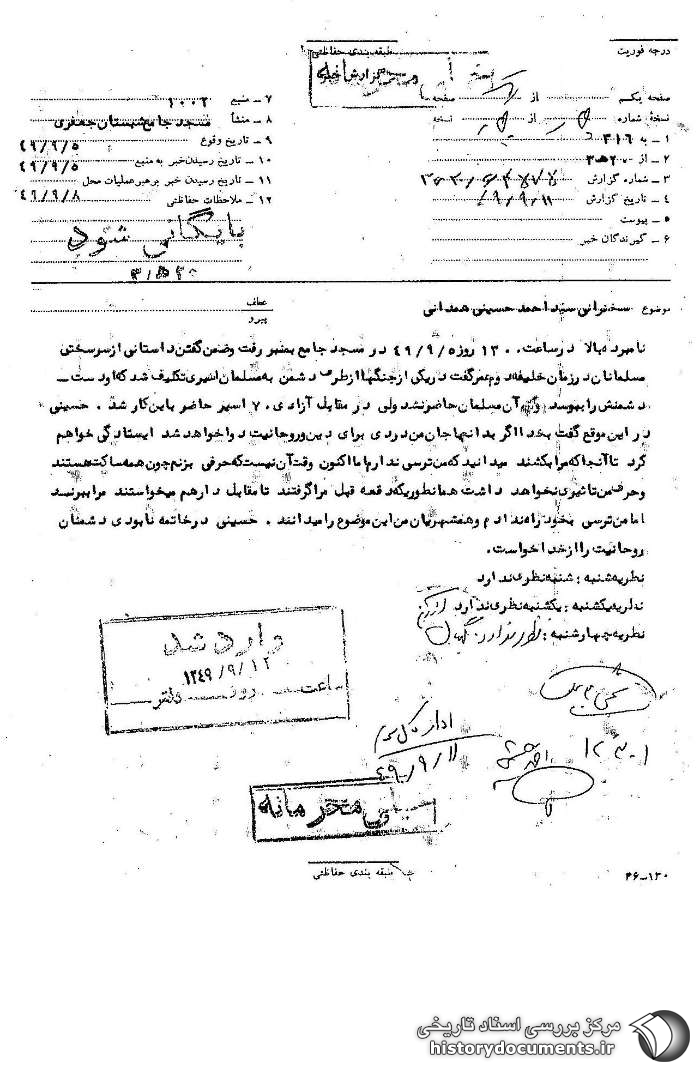 درجه فوریت
طبقه بندی حفاظتی
گزارش خبر
خیلی محرمانه
صفحه یکم از صفحه
نسخهٔ شماره از نسخه
۱ – به ۳۱۶
۲ – از ۲۰ ه ۳
۳ – شماره گزارش
۴ – تاریخ گزارش ۴۹/۹/۱۱
۵ – پیوست
۶ – گیرندگان خبر
۷ – منبع ۱۰۰۲
۸ – منشأ مسجد جامع شبستان جعفری
۹ – تاریخ وقوع ۴۹/۹/۵
۱۰ – تاریخ رسیدن خبر به منبع ۴۹/۹/۵
۱۱ – تاریخ رسیدن خبر برهبر عملیات محل ۴۹/۹/۸
۱۲ – ملاحظات حفاظتی
بایگانی شود
موضوع سخنرانی سید احمد حسینی همدانی
عطف
پیرو
نامبرده بالا در ساعت ۱۳۰۰ روز ۴۹/۹/۵ در مسجد جامع بمنبر رفت وضمن گفتن داستانی از سرسختی
مسلمانان در زمان خلیفه دوم عمر گفت در یکی از جنگها از طرف دشمن به مسلمان اسیری تکلیف شد که او دست –
دشمنش را ببوسد ولی آن مسلمان حاضر نشد ولی در مقابل آزادی ۷۰ اسیر حاضر باین کار شد . حسینی
در این موقع گفت بخدا اگر بدانم با جان من دردی برای دین و روحانیت دوا خواهد شد ایستادگی خواهم
کرد تا آنجا که مرا بکشند میدانید که من ترسی ندارم اما اکنون وقت آن نیست که حرفی بزنم چون همه ساکت هستند
و حرف من تاثیری نخواهد داشت همانطوریکه دفعه قبل مرا گرفتند تا مقابل دارهم میخواستند مرا ببرند
اما من ترسی بخود راه ندادم و همشهریان من این موضوع را میدانند . حسینی در خاتمه نابودی دشمنان
روحانیت را از خدا خواست .
نظریه شنبه : شنبه نظری ندارد
نظریه یکشنبه : یکشنبه نظری ندارد
نظریه چهارشنبه : نظری ندارد
وارد شد
۱۳۴۹/۹/۱۲
ساعت روز دفتر
اداره کل سوم
۴۹/۹/۱۱
خیلی محرمانه
طبقه بندی حفاظتی
۴۶-۱۳۰
مرکز بررسی اسناد تاریخی
historydocuments.ir